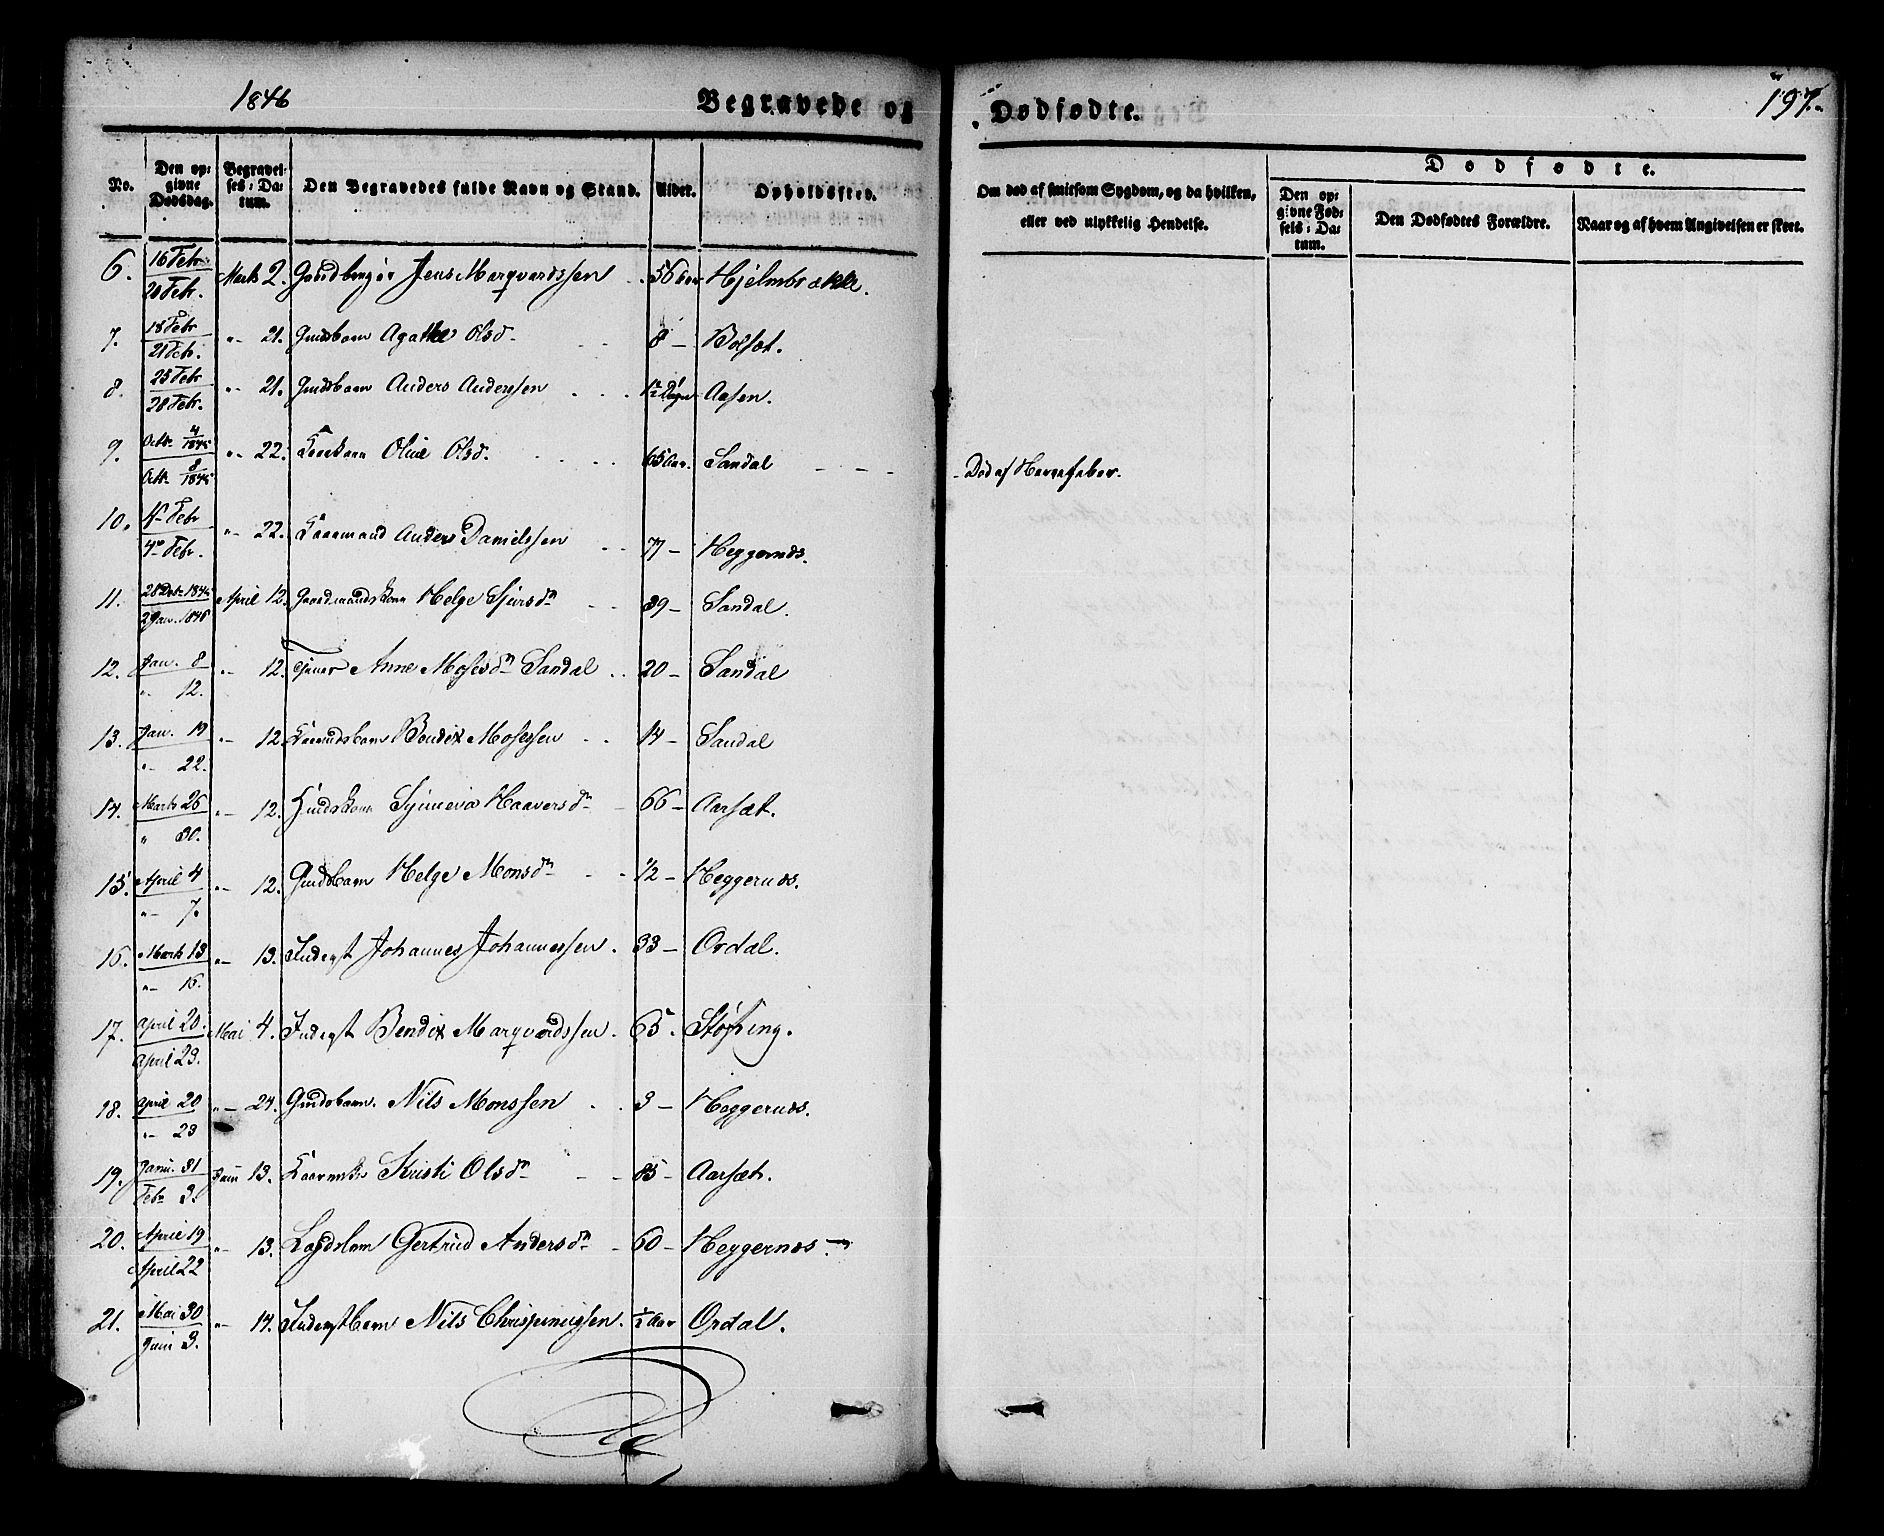 1846 Begravede og Dødfødte. 197.
No. Den opgivne Dødsdag. Begravelses-Datum. Den Begravedes fulde Navn og Stand. Alder. Opholdssted. Om død af smitsom Sygdom, og da hvilken, eller ved ulykkelig Hendelse. Dødfødte.
Den opgivne Fødsels-Datum. Den Dødfødtes Forældre. Naar og af hvem Angivelsen er skeet.
6. 16 Febr. 20 Febr. Marts 2. Jens Marqvardssen 56 Aar Hjelmbrække.
7. 18 Febr 21 Febr. "- 21. Gmdsbarn Agathe Olsdr 8 - Bolsæt.
8. 25 Febr 28 Febr. "- 21. Gmdsbarn Anders Andersen Aasen.
9. Octb. 4 1845 Octb. 8 1845 "- 22. Oline Olsd. 65 Aar. Sandal - Død af Nervefeber.
10. Febr Febr. "- 22. Kaarmand Anders Danielssen 77 - Heggernæs.
11. 28 Dcb. 1845 2 Jan. 1846 April 12. Gaardmandskone Helge Sjursdn 39 - Sandal.
12. Jan. 8 "- 12. "- 12. Tjener Anne Mosesdn Sandal 20 - Sandal
13. Jan. 19 "- 22. "- 12. Bendix Mosessen 14 - Sandal
14. Marts 26 " 30. "- 12. Synneva Haaversdn 66 - Aarsæt.
15. April 4 "- 7. "- 12. Gmdsbarn Helge Monsdn 1/2 - Heggernæs.
16. Marts 13 "- 16. "- 13. Inderst Johannes Johannessen. 33 - Ordal.
17. April 20. April 23. Mai 4. Inderst Bendix Marqvardssen. 65. Støfring.
18. April 20 "- 23 "- 24. Gmdsbarn. Nils Monssen 3 - Heggernæs.
19. Janu. 31 Febr 3. Juni 13. Kristi Olsdn 85 - Aarsæt.
20. April 19 April 22 "- 13. Gertrud Andersdn 60 - Heggernæs.
21. Mai 30 Juni 3. "- 14. Inderstbarn Nils 1/2 Aar Ordal.